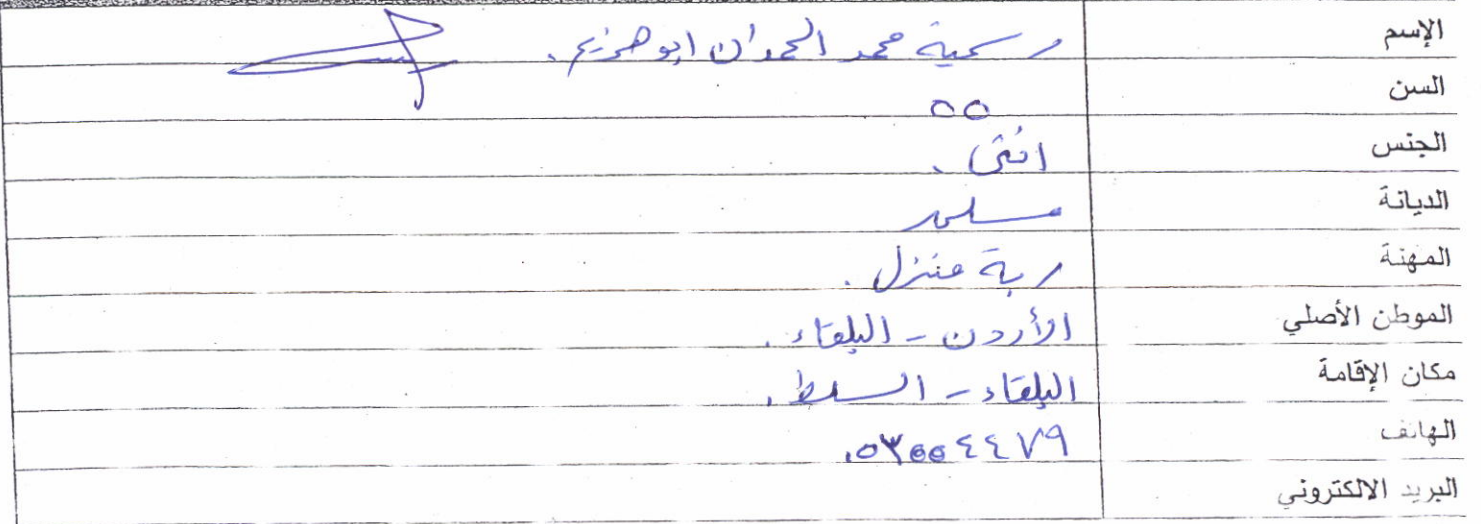 الإسم رسمية محمد الحمدان ابوهزيم.
السن ٥٥
الجنس انثى.
الديانة مسلمه
المهنة ربة منزل.
الموطن الأصلي الأردن - البلقاء.
مكان الإقامة البلقاء - السلط.
الهاتف ٠٥٣٥٥٤٤٧٩
البريد الالكتروني